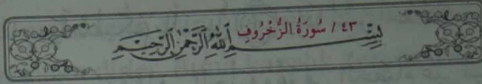 ٤٣ / سُورَةُ الزُّخْرُوفِ
بِسْمِ اللهِ الرَّحْمٰنِ الرَّحِيْمِ